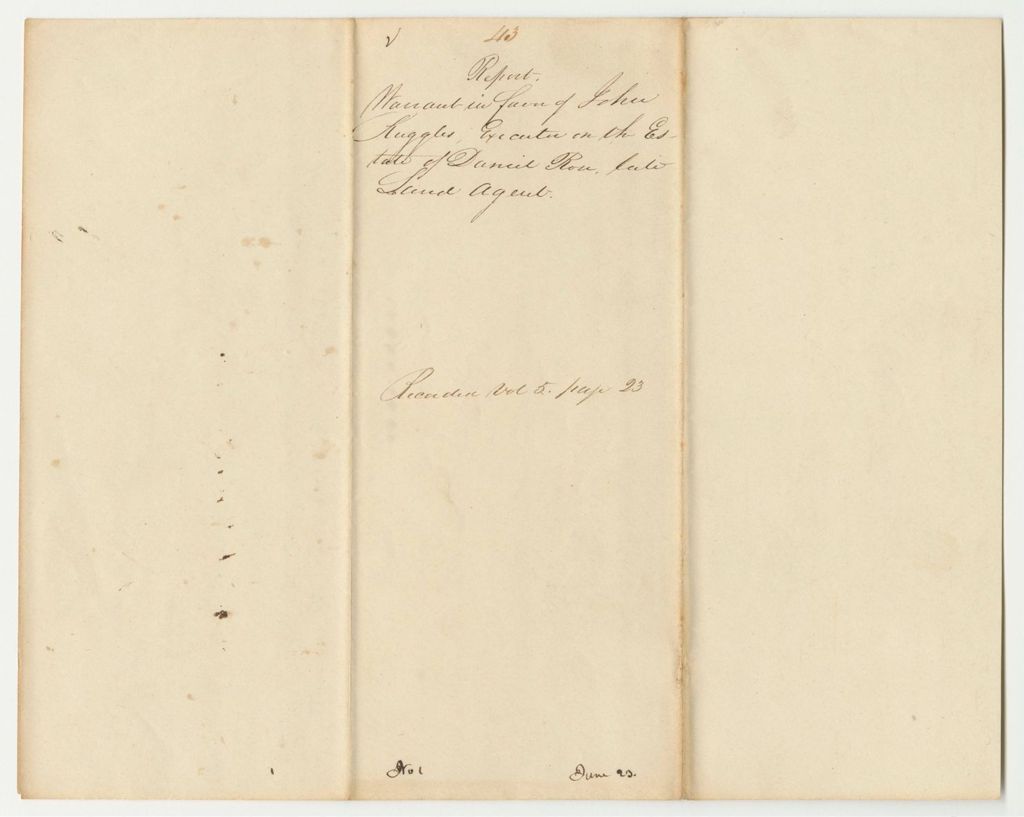 ✓ 43
Report.
Warrant in favor of John
Ruggles, Executor on the Es-
tate of Daniel Rose, late
Land Agent.
Recorded Vol 5. page 23
No 1 June 23.